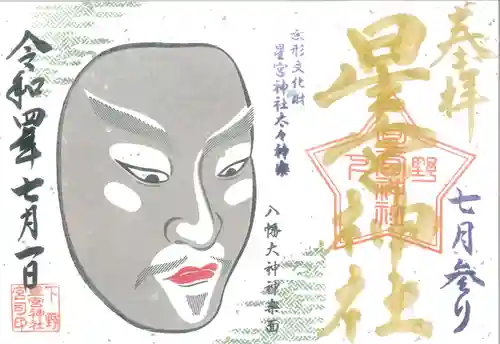 奉拝
星宮神社
七月参り
下野
星宮神社
無形文化財
星宮神社太々神楽
八幡大神神楽面
令和四年七月一日
下野
星宮神社
宮司印